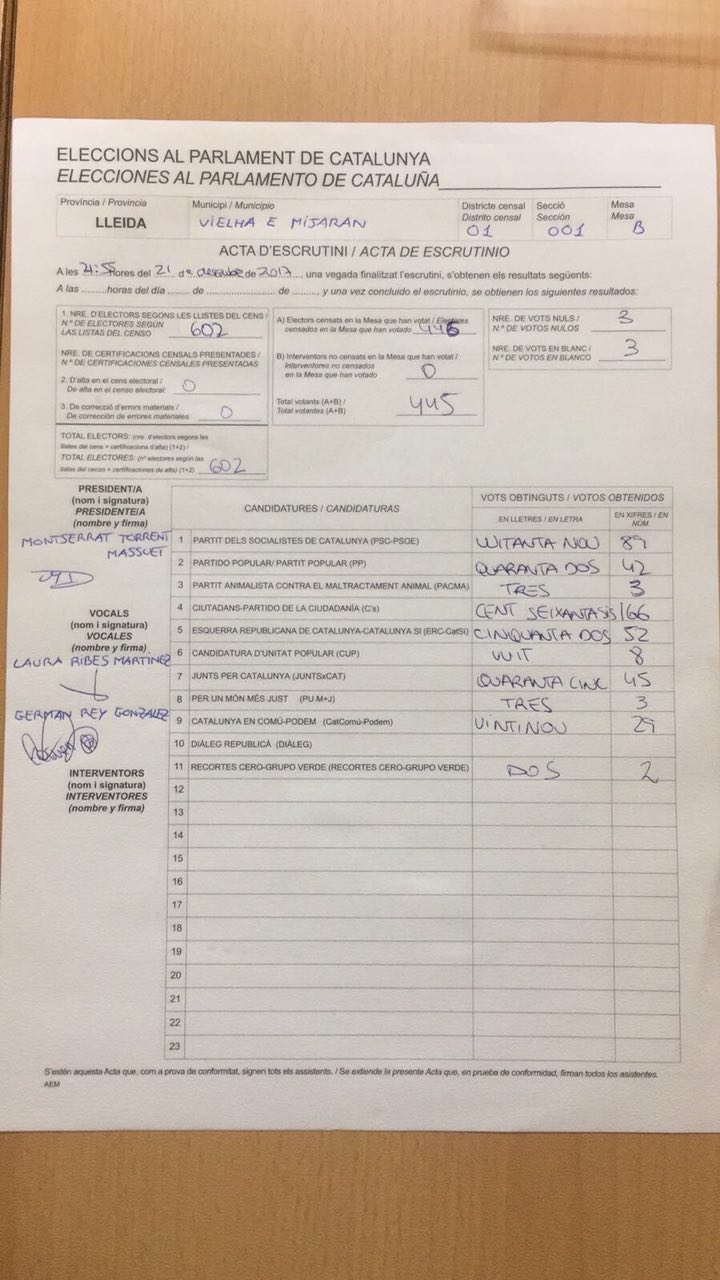 ELECCIONS AL PARLAMENT DE CATALUNYA
ELECCIONES AL PARLAMENTO DE CATALUÑA
Província / Provincia
LLEIDA
Municipi / Municipio
VIELHA E MIJARAN
Districte censal
Distrito censal
01
Secció
Sección
001
Mesa
Mesa
B
ACTA D'ESCRUTINI / ACTA DE ESCRUTINIO
A les 21:55 hores del 21 de desembre de 2017, una vegada finalitzat l'escrutini, s'obtenen els resultats següents:
A las .........horas del día ........ de .................... de ........, y una vez concluido el escrutinio, se obtienen los siguientes resultados:
1. NRE. D'ELECTORS SEGONS LES LLISTES DEL CENS /
N.º DE ELECTORES SEGÚN
LAS LISTAS DEL CENSO 602
NRE. DE CERTIFICACIONS CENSALS PRESENTADES /
N.º DE CERTIFICACIONES CENSALES PRESENTADAS
2. D'alta en el cens electoral /
De alta en el censo electoral: 0
3. De correcció d'errors materials /
De corrección de errores materiales: 0
TOTAL ELECTORS: (nre. d'electors segons les
llistes del cens + certificacions d'alta) (1+2) /
TOTAL ELECTORES: (nº electores según las
listas del censo + certificaciones de alta) (1+2) 602
A) Electors censats en la Mesa que han votat / Electores
censados en la Mesa que han votado
B) Interventors no censats en la Mesa que han votat /
Interventores no censados
en la Mesa que han votado 0
Total votants (A+B) /
Total votantes (A+B) 445
NRE. DE VOTS NULS /
N.º DE VOTOS NULOS 3
NRE. DE VOTS EN BLANC /
N.º DE VOTOS EN BLANCO 3
PRESIDENT/A
(nom i signatura)
PRESIDENTE/A
(nombre y firma)
MONTSERRAT TORRENT
MASSUET
VOCALS
(nom i signatura)
VOCALES
(nombre y firma)
LAURA RIBES MARTINEZ
GERMAN REY GONZALEZ
INTERVENTORS
(nom i signatura)
INTERVENTORES
(nombre y firma)
CANDIDATURES / CANDIDATURAS
VOTS OBTINGUTS / VOTOS OBTENIDOS
EN LLETRES / EN LETRA
EN XIFRES / EN NÚM.
1 PARTIT DELS SOCIALISTES DE CATALUNYA (PSC-PSOE) VUITANTA NOU 89
2 PARTIDO POPULAR/ PARTIT POPULAR (PP) QUARANTA DOS 42
3 PARTIT ANIMALISTA CONTRA EL MALTRACTAMENT ANIMAL (PACMA) TRES 3
4 CIUTADANS-PARTIDO DE LA CIUDADANÍA (C's) CENT SEIXANTASIS 166
5 ESQUERRA REPUBLICANA DE CATALUNYA-CATALUNYA SI (ERC-CatSí) CINQUANTA DOS 52
6 CANDIDATURA D'UNITAT POPULAR (CUP) VUIT 8
7 JUNTS PER CATALUNYA (JUNTSxCAT) QUARANTA CINC 45
8 PER UN MÓN MÉS JUST (PU M+J) TRES 3
9 CATALUNYA EN COMÚ-PODEM (CatComú-Podem) VINTINOU 29
10 DIÀLEG REPUBLICÀ (DIÀLEG)
11 RECORTES CERO-GRUPO VERDE (RECORTES CERO-GRUPO VERDE) DOS 2
12
13
14
15
16
17
18
19
20
21
22
23
S'estén aquesta Acta que, com a prova de conformitat, signen tots els assistents. / Se extiende la presente Acta que, en prueba de conformidad, firman todos los asistentes.
AEM